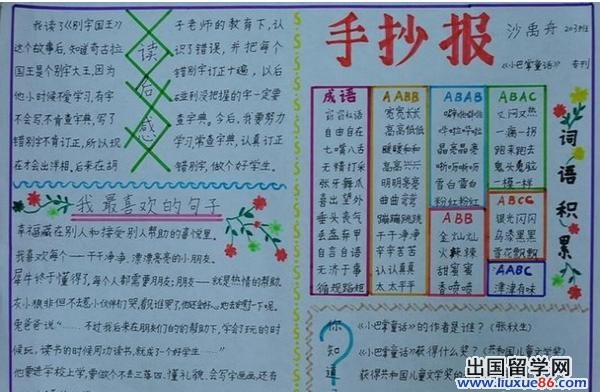 手抄报
沙禹舟
《小巴掌童话》 专刊
我读了《别字国王》
这个故事后,知道奇古拉
国王是个别字大王,因为
他小时候不爱学习,有字
不会写不肯查字典,写了
错别字不肯订正,所以现
在才会出洋相。后来在胡
读后感
子老师的教育下,认
识了错误,并把每个
错别字订正十遍,以后
碰到没把握的字一定要
查字典。今后,我要努力
学习,常查字典,认真订正
错别字,做个好学生。
我最喜欢的句子
幸福藏在别人和接受别人帮助的喜悦里。
我喜欢每个——干干净净,漂漂亮亮的小朋友。
犀牛终于懂得了,每个人都需要朋友;朋友——就是热情的帮助
兔爸爸说"……不过我后来在朋友们的帮助下,学会了玩的时候
玩,读书的时候用功读书,就成了一个好学生……"
他要进学校上学,要做个不丢三落四、懂礼貌、会写字画画,还有
成语
自由自在
七嘴八舌
无精打采
张牙舞爪
喜出望外
垂头丧气
丢盔弃甲
自言自语
无济于事
循规蹈矩
AABB
高高低低
暖暖和和
明明亮亮
曲曲弯弯
蹦蹦跳跳
干干净净
辛辛苦苦
认认真真
太太平平
ABAB
粉红粉红
ABB
金灿灿
火辣辣
甜蜜蜜
香喷喷
ABAC
又闷又热
一瘸一拐
跑来跑去
鬼头鬼脑
一模一样
ABCC
银光闪闪
乌漆黑黑
雪花飘飘
AABC
津津有味
词语积累
你知道
?
《小巴掌童话》的作者是谁?(张秋生)
《小巴掌童话》获得什么奖?(共和国儿童文学奖)
获得共和国儿童文学奖的
出国留学网
www.liuxue86.com